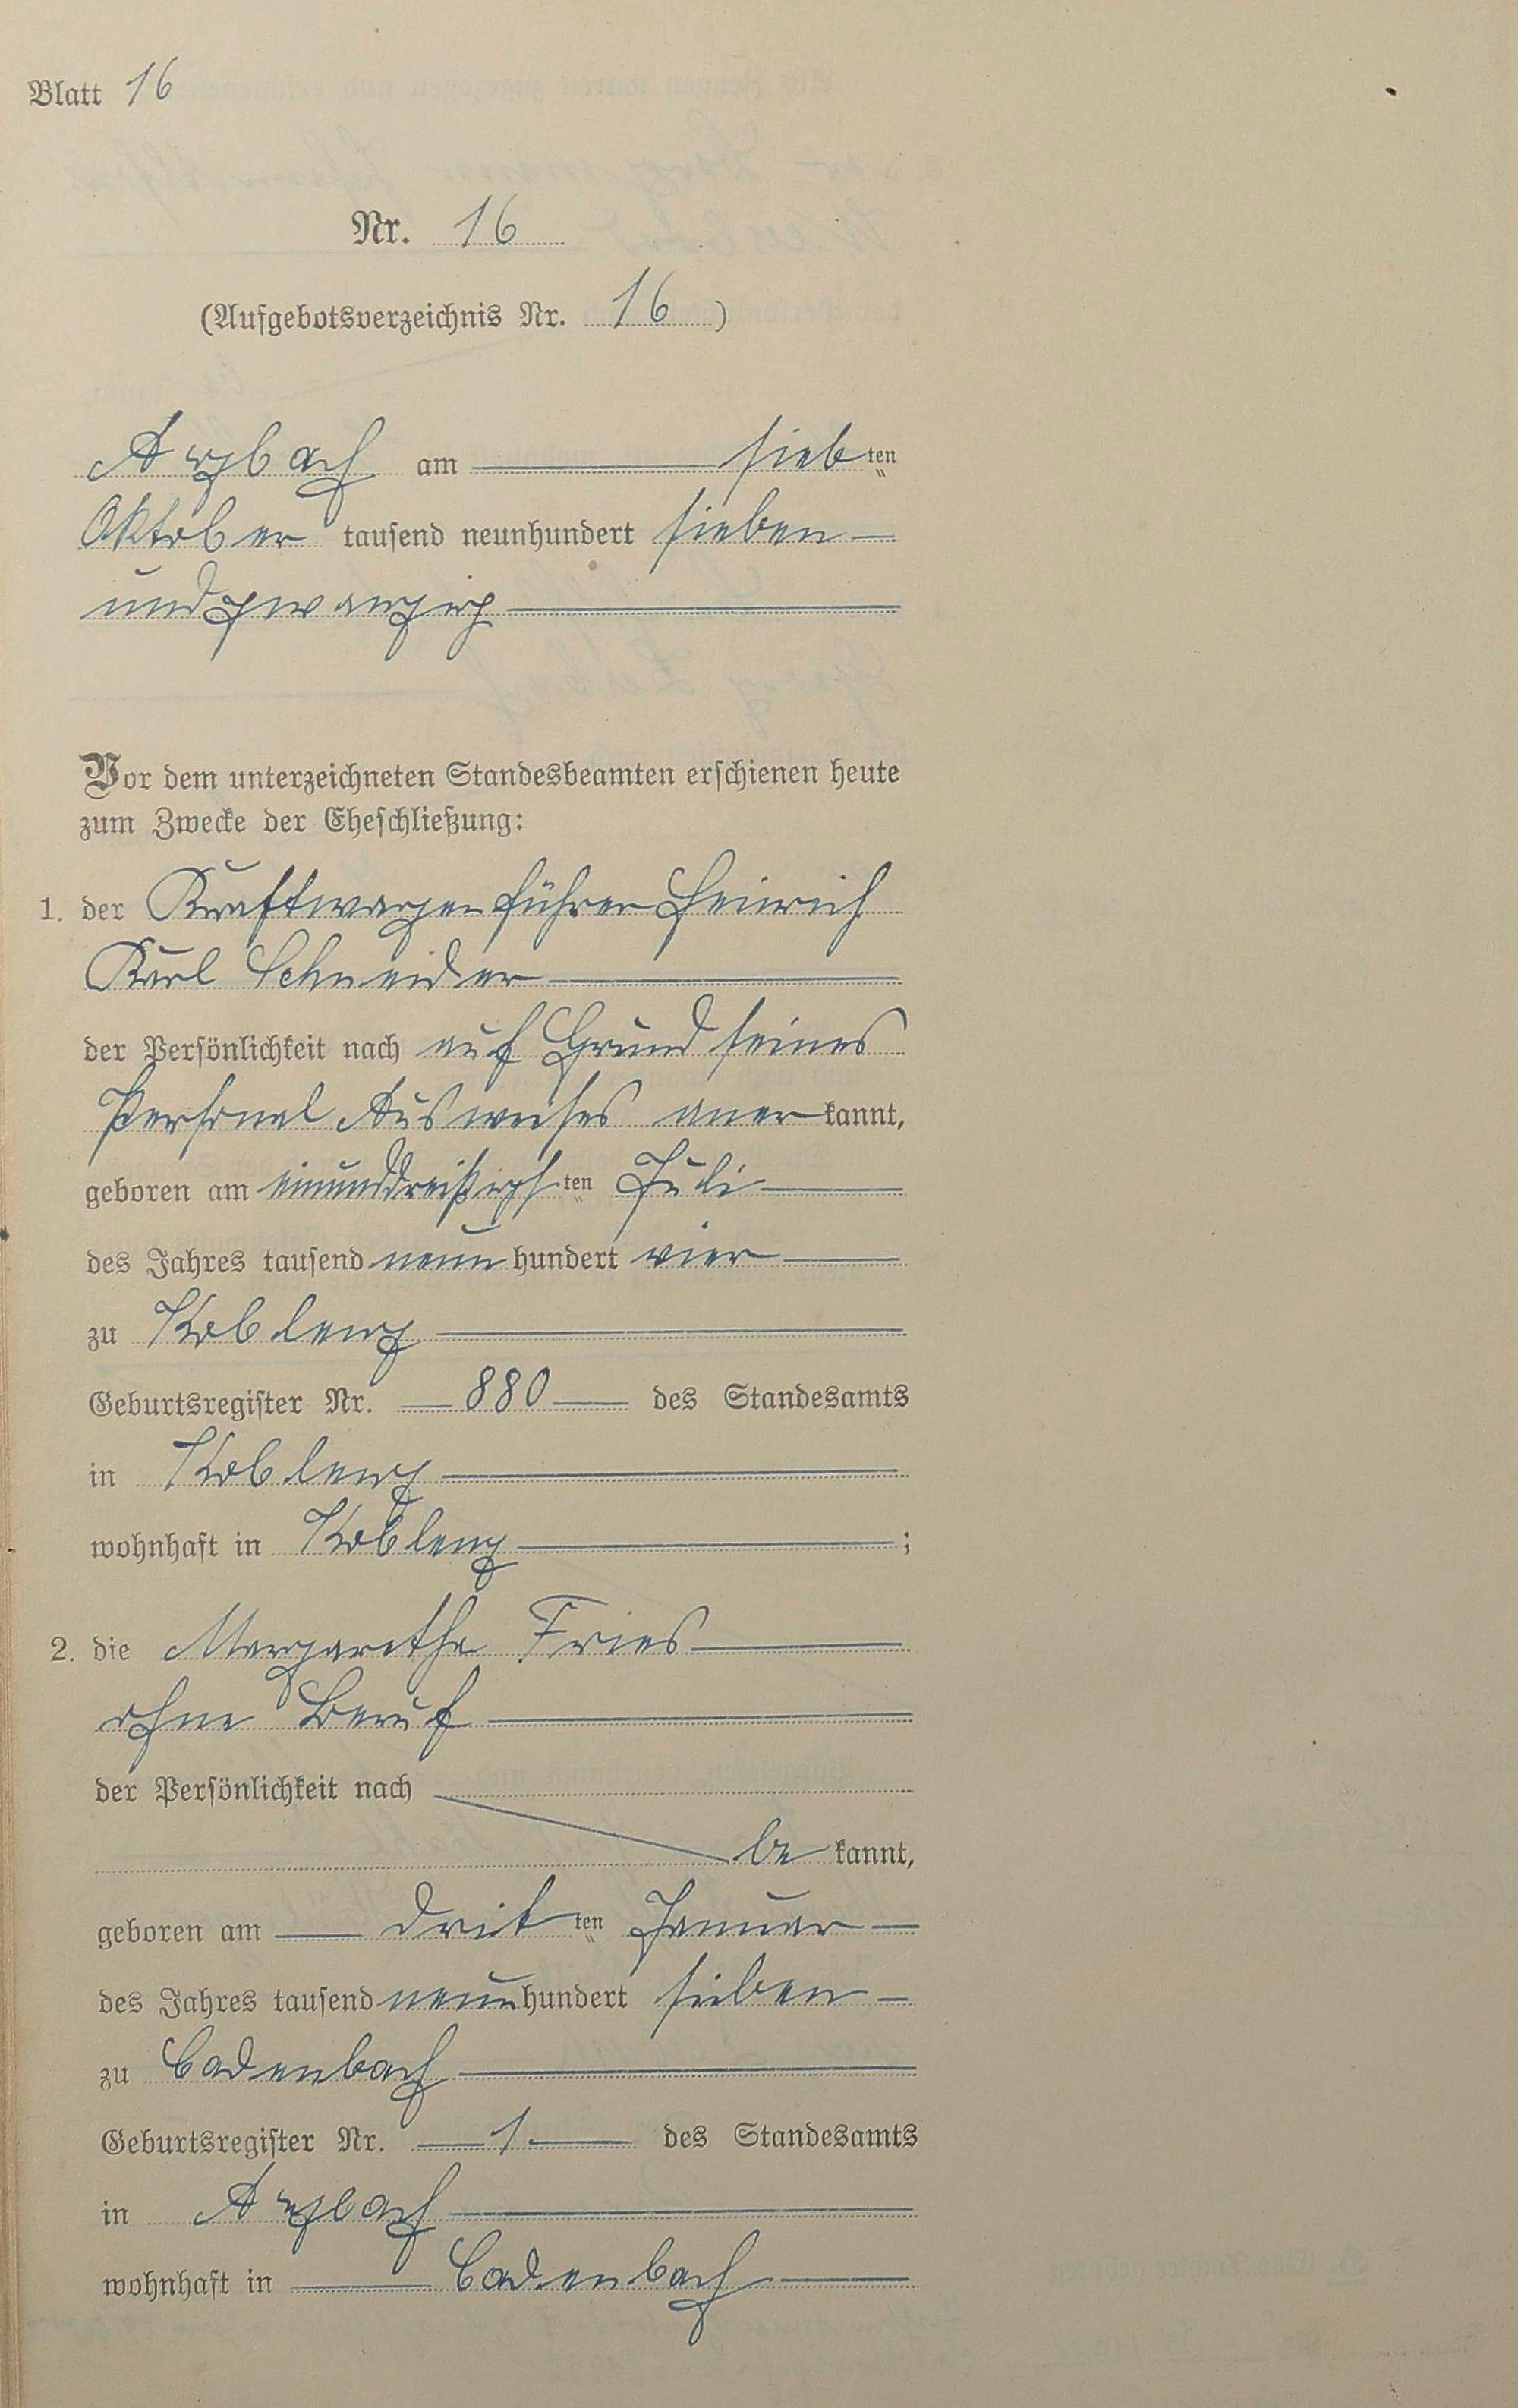 Blatt 16
Nr. 16
(Aufgebotsverzeichnis Nr. 16)
Arzbach am siebten
Oktober tausend neunhundert sieben
und zwanzig
Vor dem unterzeichneten Standesbeamten erschienen heute
zum Zwecke der Eheschließung:
1. der Kraftwagenführer Heinrich
Karl Schneider
der Persönlichkeit nach auf Grund seines
Personal Ausweises anerkannt,
geboren am einunddreißigsten Juli
des Jahres tausend neunhundert vier
zu Koblenz
Geburtsregister Nr. 880 des Standesamts
in Koblenz
wohnhaft in Koblenz;
2. die Margaretha Fries
ohne Beruf
der Persönlichkeit nach
bekannt,
geboren am dritten Januar
des Jahres tausend neunhundert sieben
zu Cadenbach
Geburtsregister Nr. 1 des Standesamts
in Arzbach
wohnhaft in Cadenbach